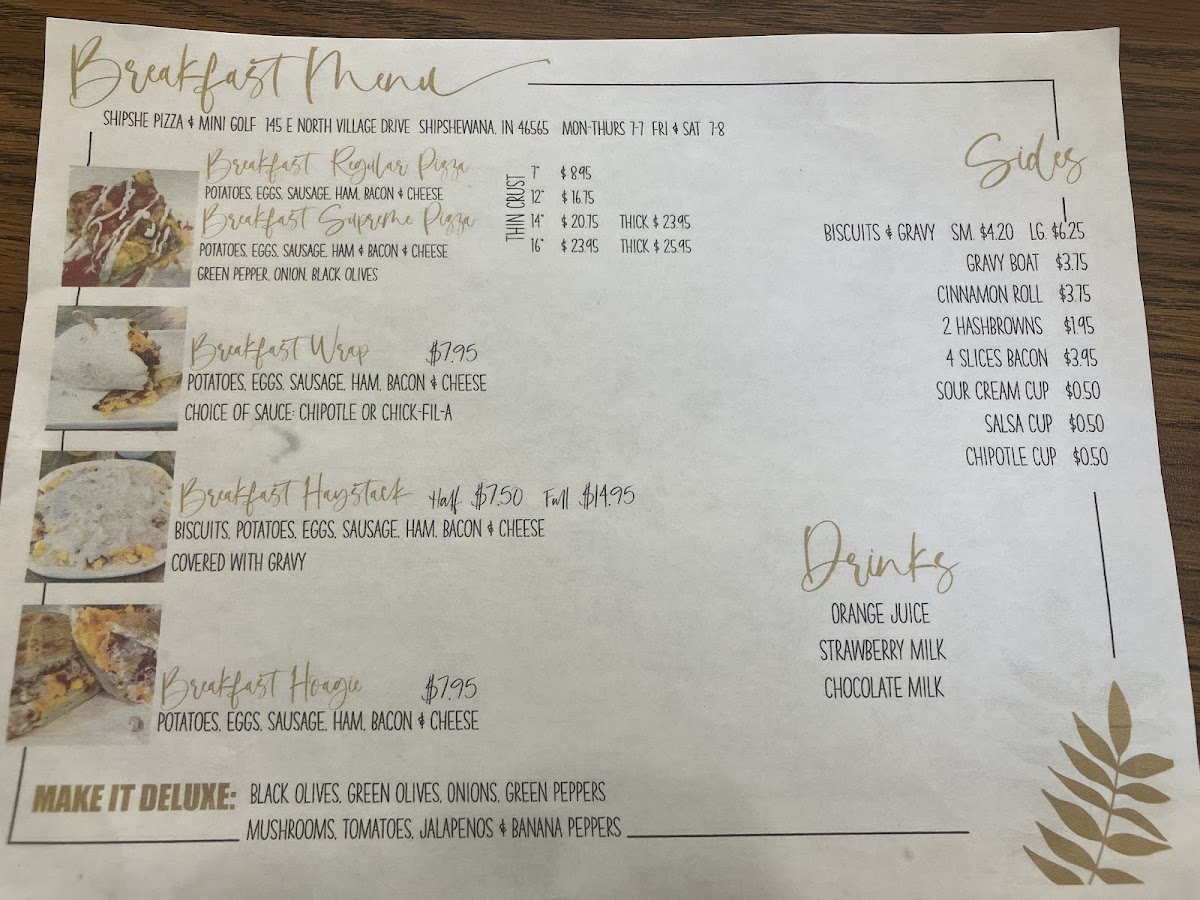 Breakfast Menu
SHIPSHE PIZZA & MINI GOLF 145 E NORTH VILLAGE DRIVE SHIPSHEWANA, IN 46565 MON-THURS 7-7 FRI & SAT 7-8
Breakfast Regular Pizza
POTATOES, EGGS, SAUSAGE, HAM, BACON & CHEESE
Breakfast Supreme Pizza
POTATOES, EGGS, SAUSAGE, HAM & BACON & CHEESE
GREEN PEPPER, ONION, BLACK OLIVES
THIN CRUST
7" $8.95
12" $16.75
14" $20.75 THICK $23.95
16" $23.95 THICK $25.95
Breakfast Wrap $7.95
POTATOES, EGGS, SAUSAGE, HAM, BACON & CHEESE
CHOICE OF SAUCE: CHIPOTLE OR CHICK-FIL-A
Breakfast Haystack Half $7.50 Full $14.95
BISCUITS, POTATOES, EGGS, SAUSAGE, HAM, BACON & CHEESE
COVERED WITH GRAVY
Breakfast Hoagie $7.95
POTATOES, EGGS, SAUSAGE, HAM, BACON & CHEESE
MAKE IT DELUXE: BLACK OLIVES, GREEN OLIVES, ONIONS, GREEN PEPPERS
MUSHROOMS, TOMATOES, JALAPENOS & BANANA PEPPERS
Sides
BISCUITS & GRAVY SM. $4.20 LG. $6.25
GRAVY BOAT $3.75
CINNAMON ROLL $3.75
2 HASHBROWNS $1.95
4 SLICES BACON $3.95
SOUR CREAM CUP $0.50
SALSA CUP $0.50
CHIPOTLE CUP $0.50
Drinks
ORANGE JUICE
STRAWBERRY MILK
CHOCOLATE MILK